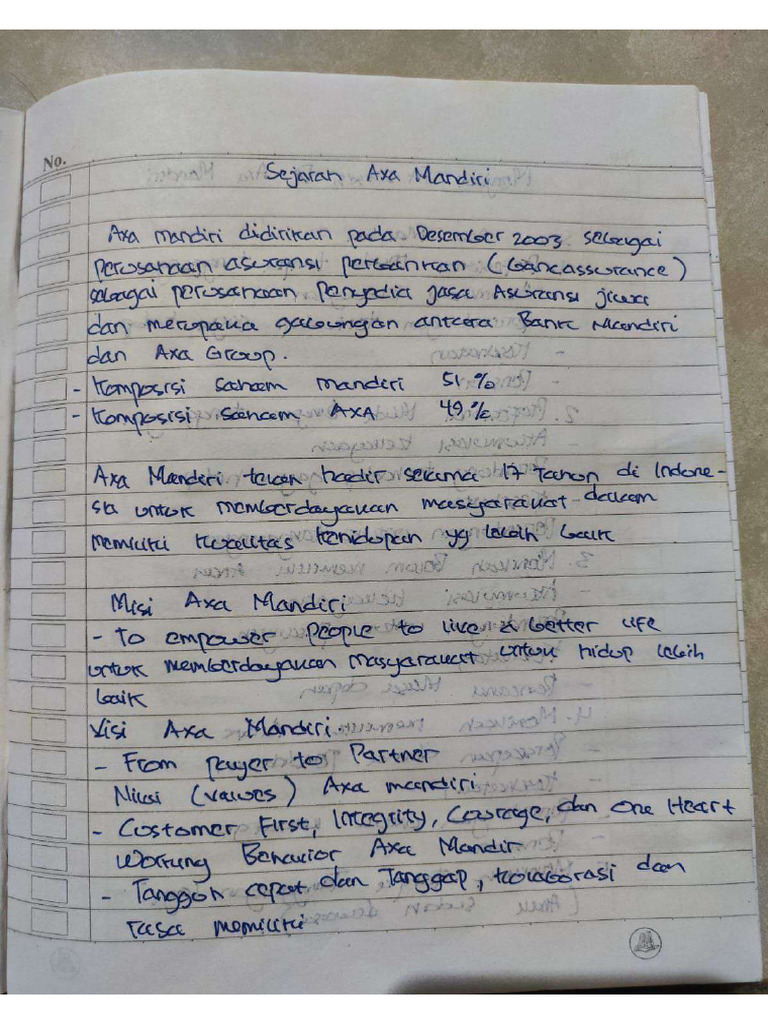 No.
Sejarah Axa Mandiri
Axa mandiri didirikan pada Desember 2003 sebagai
perusahaan asuransi perbankan (bancassurance)
sebagai perusahaan penyedia jasa Asuransi jiwa
dan merupaka gabungan antara Bank Mandiri
dan Axa Group.
- Komposisi saham mandiri 51%
- Komposisi saham AXA 49%
Axa Mandiri telah hadir selama 17 Tahun di Indone-
sia untuk memberdayakan masyarakat dalam
memiliki kualitas kehidupan yg lebih baik
Misi Axa Mandiri
- To empower people to live a better life
untuk memberdayakan masyarakat untuk hidup lebih
baik
Visi Axa Mandiri
- From payer to Partner
Nilai (values) Axa mandiri
- Customer First, Integrity, Courage, dan One Heart
Working Behavior Axa Mandir
- Tangguh cepat dan Tanggap, kolaborasi dan
rasa memiliki